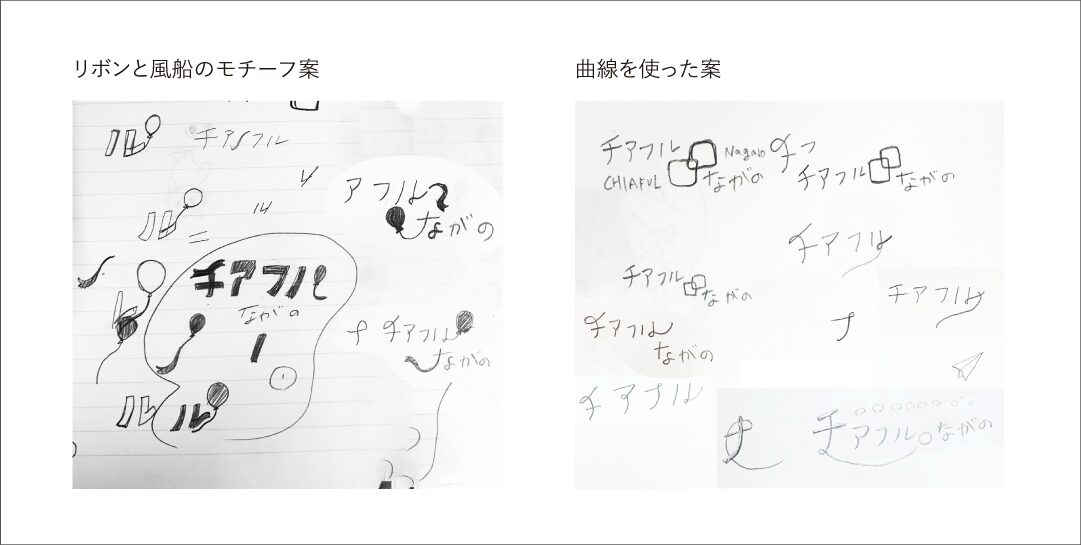 リボンと風船のモチーフ案
ル
チアフル
ル
ル
アフル
ながの
チアフル
ながの
チ チアフル
ながの
ル ル
曲線を使った案
チアフル Nagano チ
CHIAFUL ながの
チアフル ながの
チアフル
チアフル ながの
チアフル
チアフル
ながの
チアフル
チ チアフル ながの